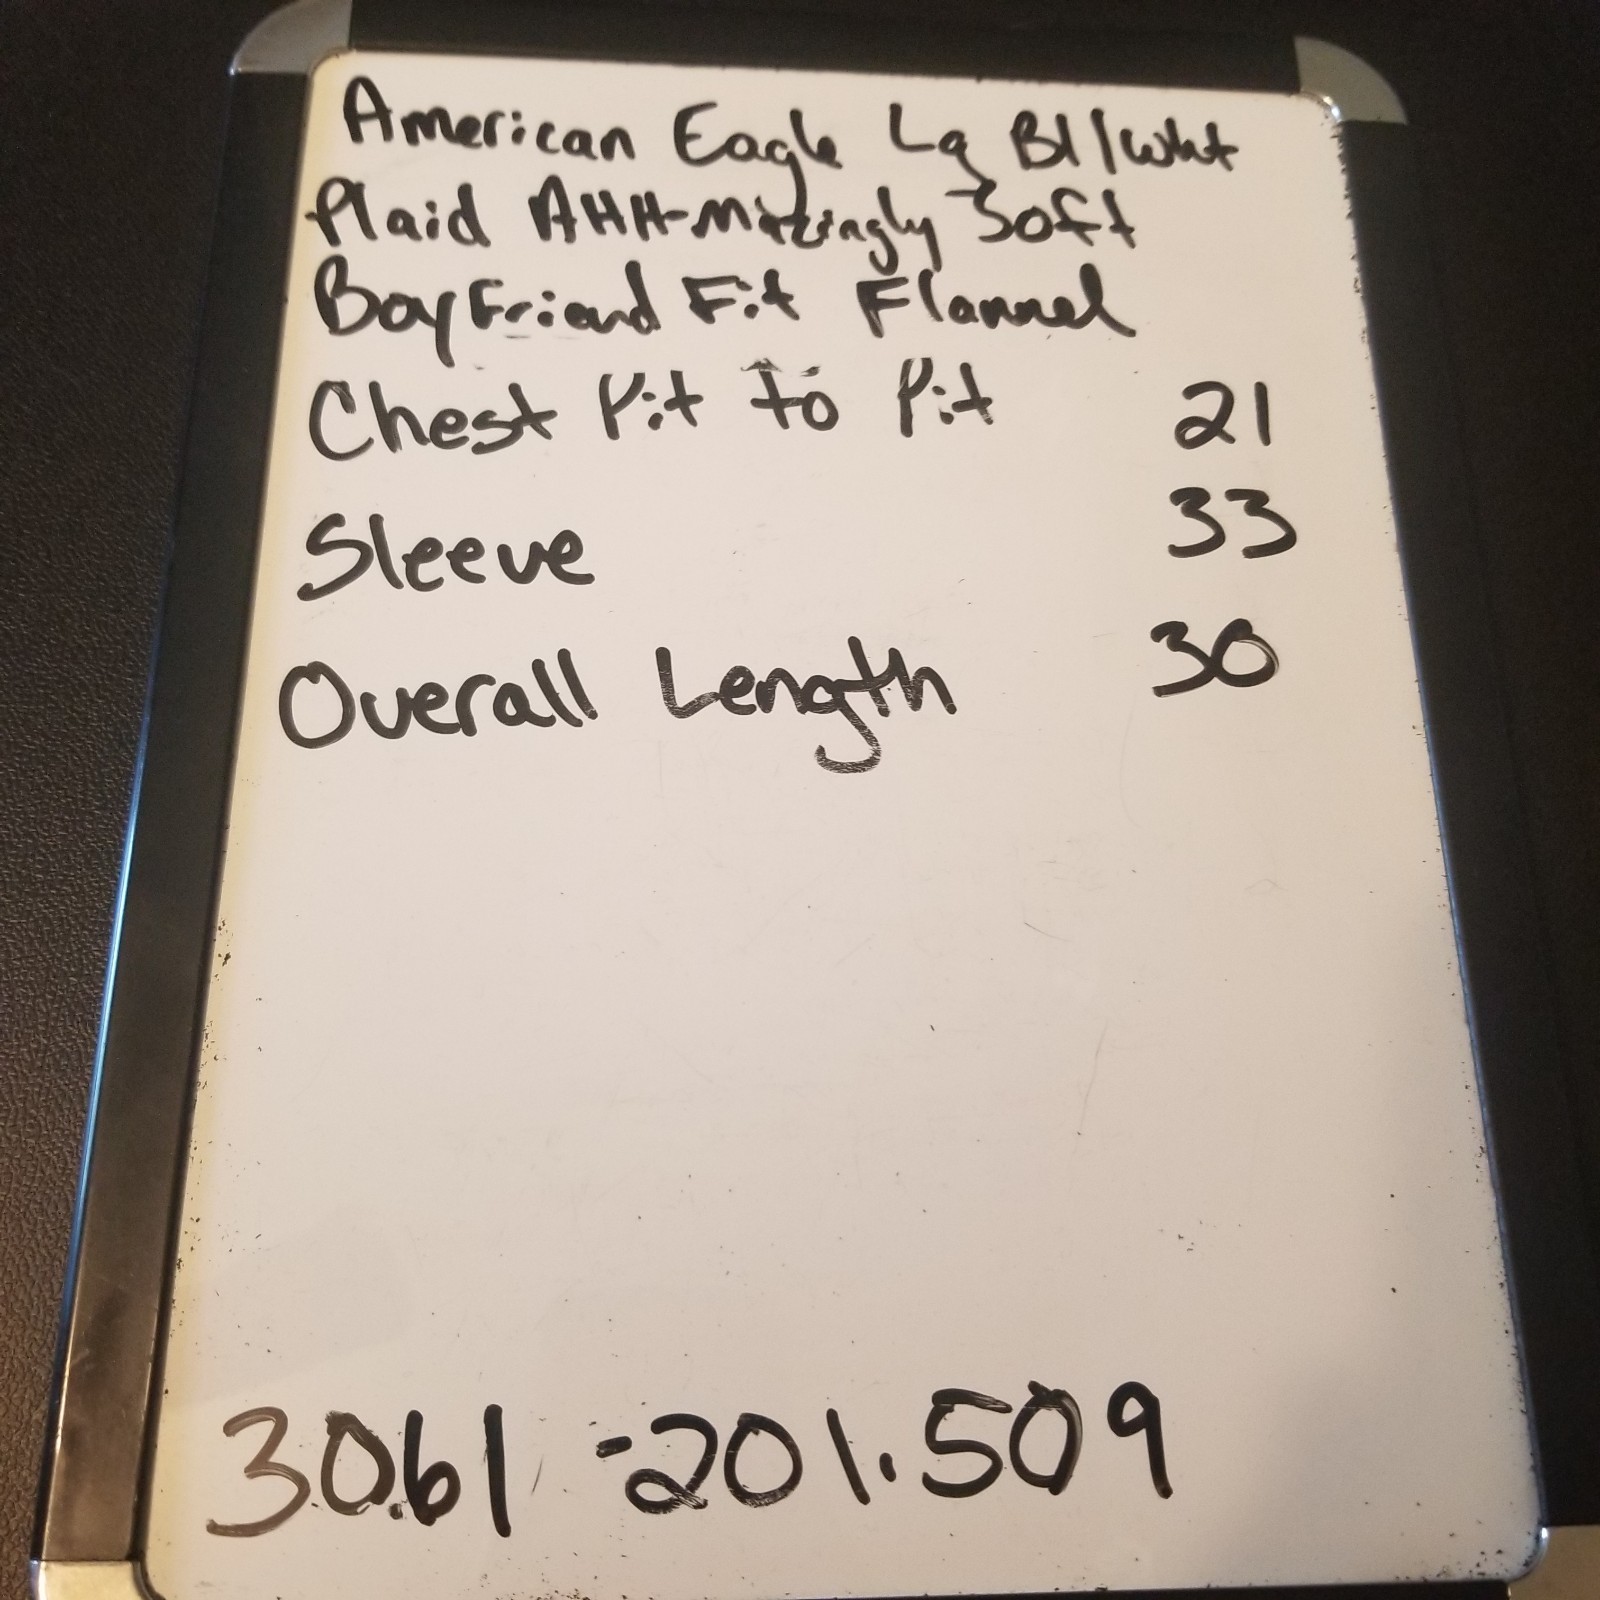 American Eagle Lg Bl/Wht
Plaid AHH-Mazingly Soft
Boyfriend Fit Flannel
Chest Pit to Pit 21
Sleeve 33
Overall Length 30
3061-201.509